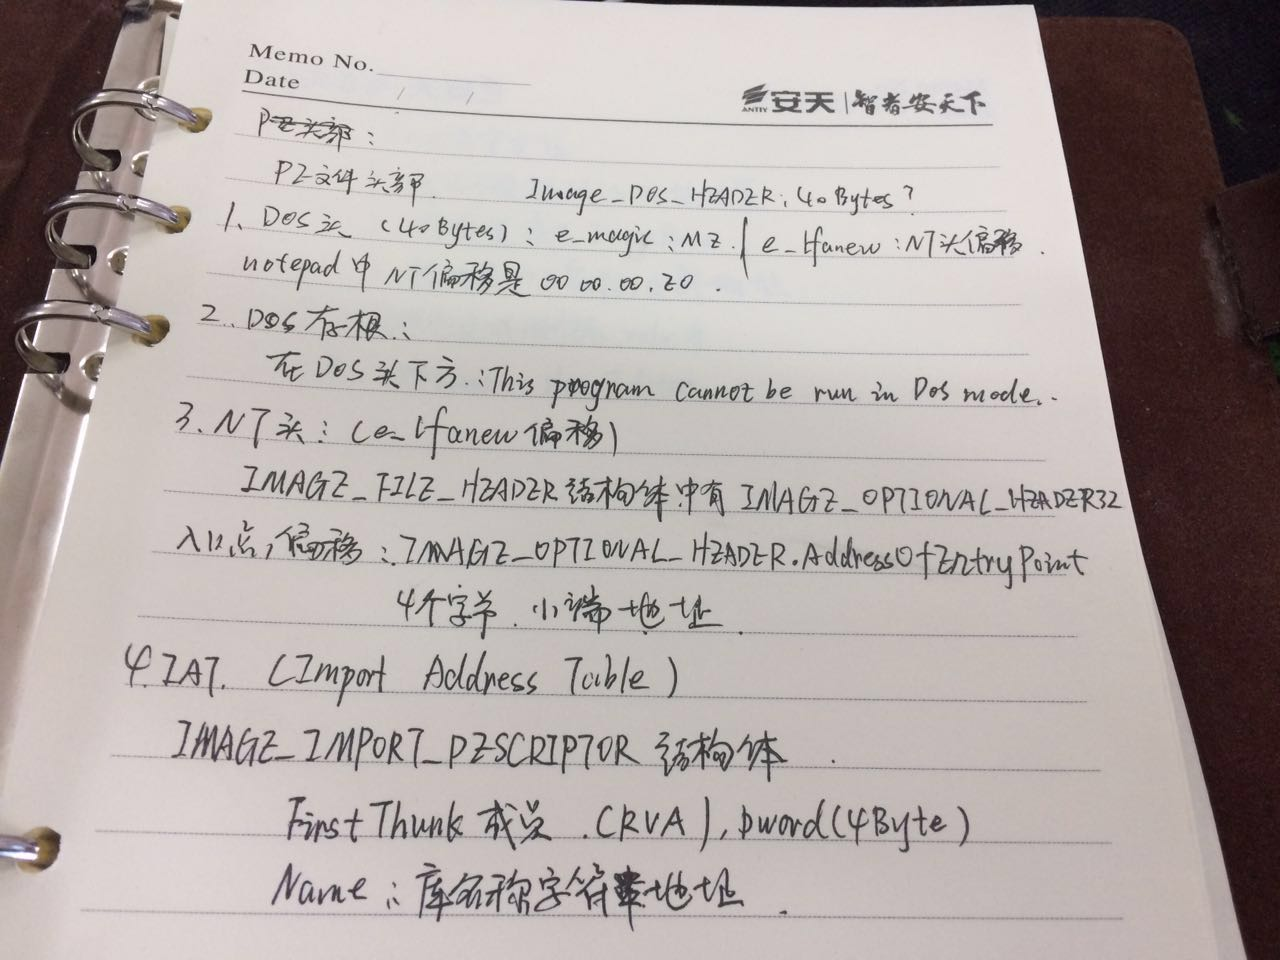 Memo No.
Date / /
ANTIY 安天 | 智者安天下
PE头部:
PE文件头部. Image_DOS_HEADER: 40Bytes?
1. DOS头 (40Bytes): e_magic: MZ. | e_lfanew: NT头偏移.
notepad中NT偏移是 00 00.00.E0.
2. DOS存根:
在DOS头下方: This program cannot be run in Dos mode..
3. NT头: (e_lfanew偏移)
IMAGE_FILE_HEADER结构体中有IMAGE_OPTIONAL_HEADER32
入口点,偏移: IMAGE_OPTIONAL_HEADER.AddressOfEntryPoint
4个字节. 小端地址.
4. IAT. (Import Address Table)
IMAGE_IMPORT_DESCRIPTOR 结构体.
FirstThunk成员.(RVA), Dword(4Byte)
Name: 库名称字符串地址.